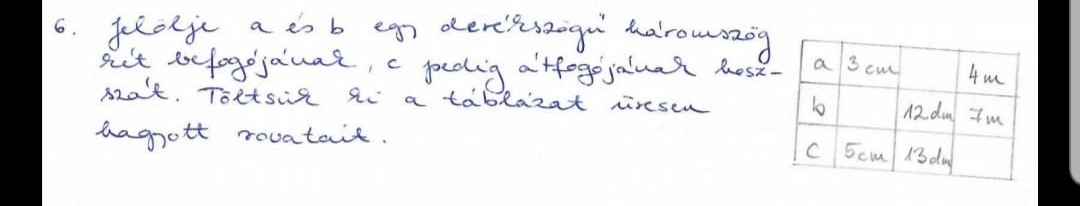 6. Jelölje a és b egy derékszögű háromszög
két befogójának, c pedig átfogójának hosz-
szát. Töltsük ki a táblázat üresen
hagyott rovatait.
a 3cm 4m
b 12dm 7m
c 5cm 13dm